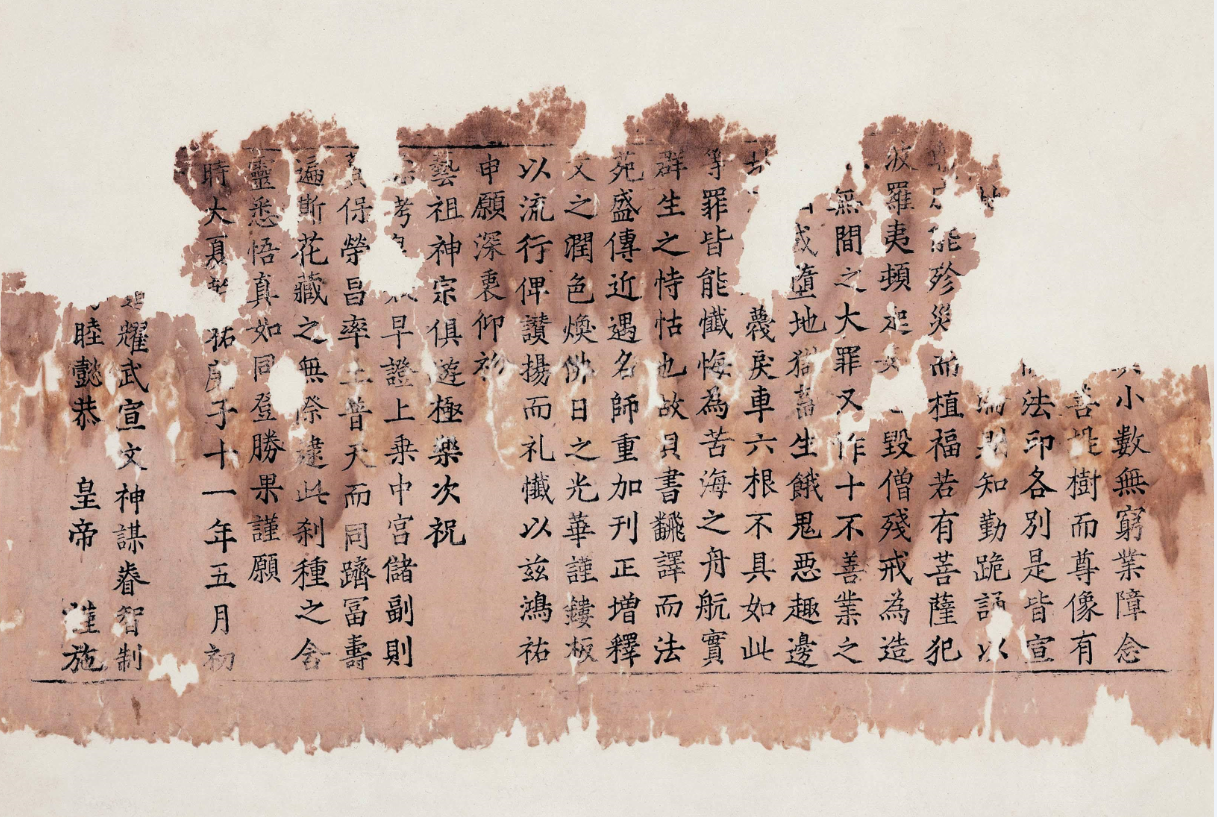 小數無窮業障念
菩提樹而尊像有
法印各別是皆宣
則知勤跪誦以
能殄災而植福若有菩薩犯
波羅夷頓起毀僧殘戒為造
無間之大罪又作十不善業之
或墮地獄畜生餓鬼惡趣邊
蔑戾車六根不具如此
等罪皆能懺悔為苦海之舟航實
群生之恃怙也故貝書翻譯而法
苑盛傳近遇名師重加刊正增釋
文之潤色煥佛日之光華謹鏤板
以流行俾讚揚而礼懺以兹鴻祐
申願深衷仰祈
藝祖神宗俱遊極樂次祝
考早證上乗中宮儲副則
保榮昌率土普天而同躋冨壽
遍斯花藏之無際逮此刹種之含
靈悉悟真如同登勝果謹願
時大夏祐庚子十一年五月初
耀武宣文神謀睿智制
睦懿恭 皇帝 謹施